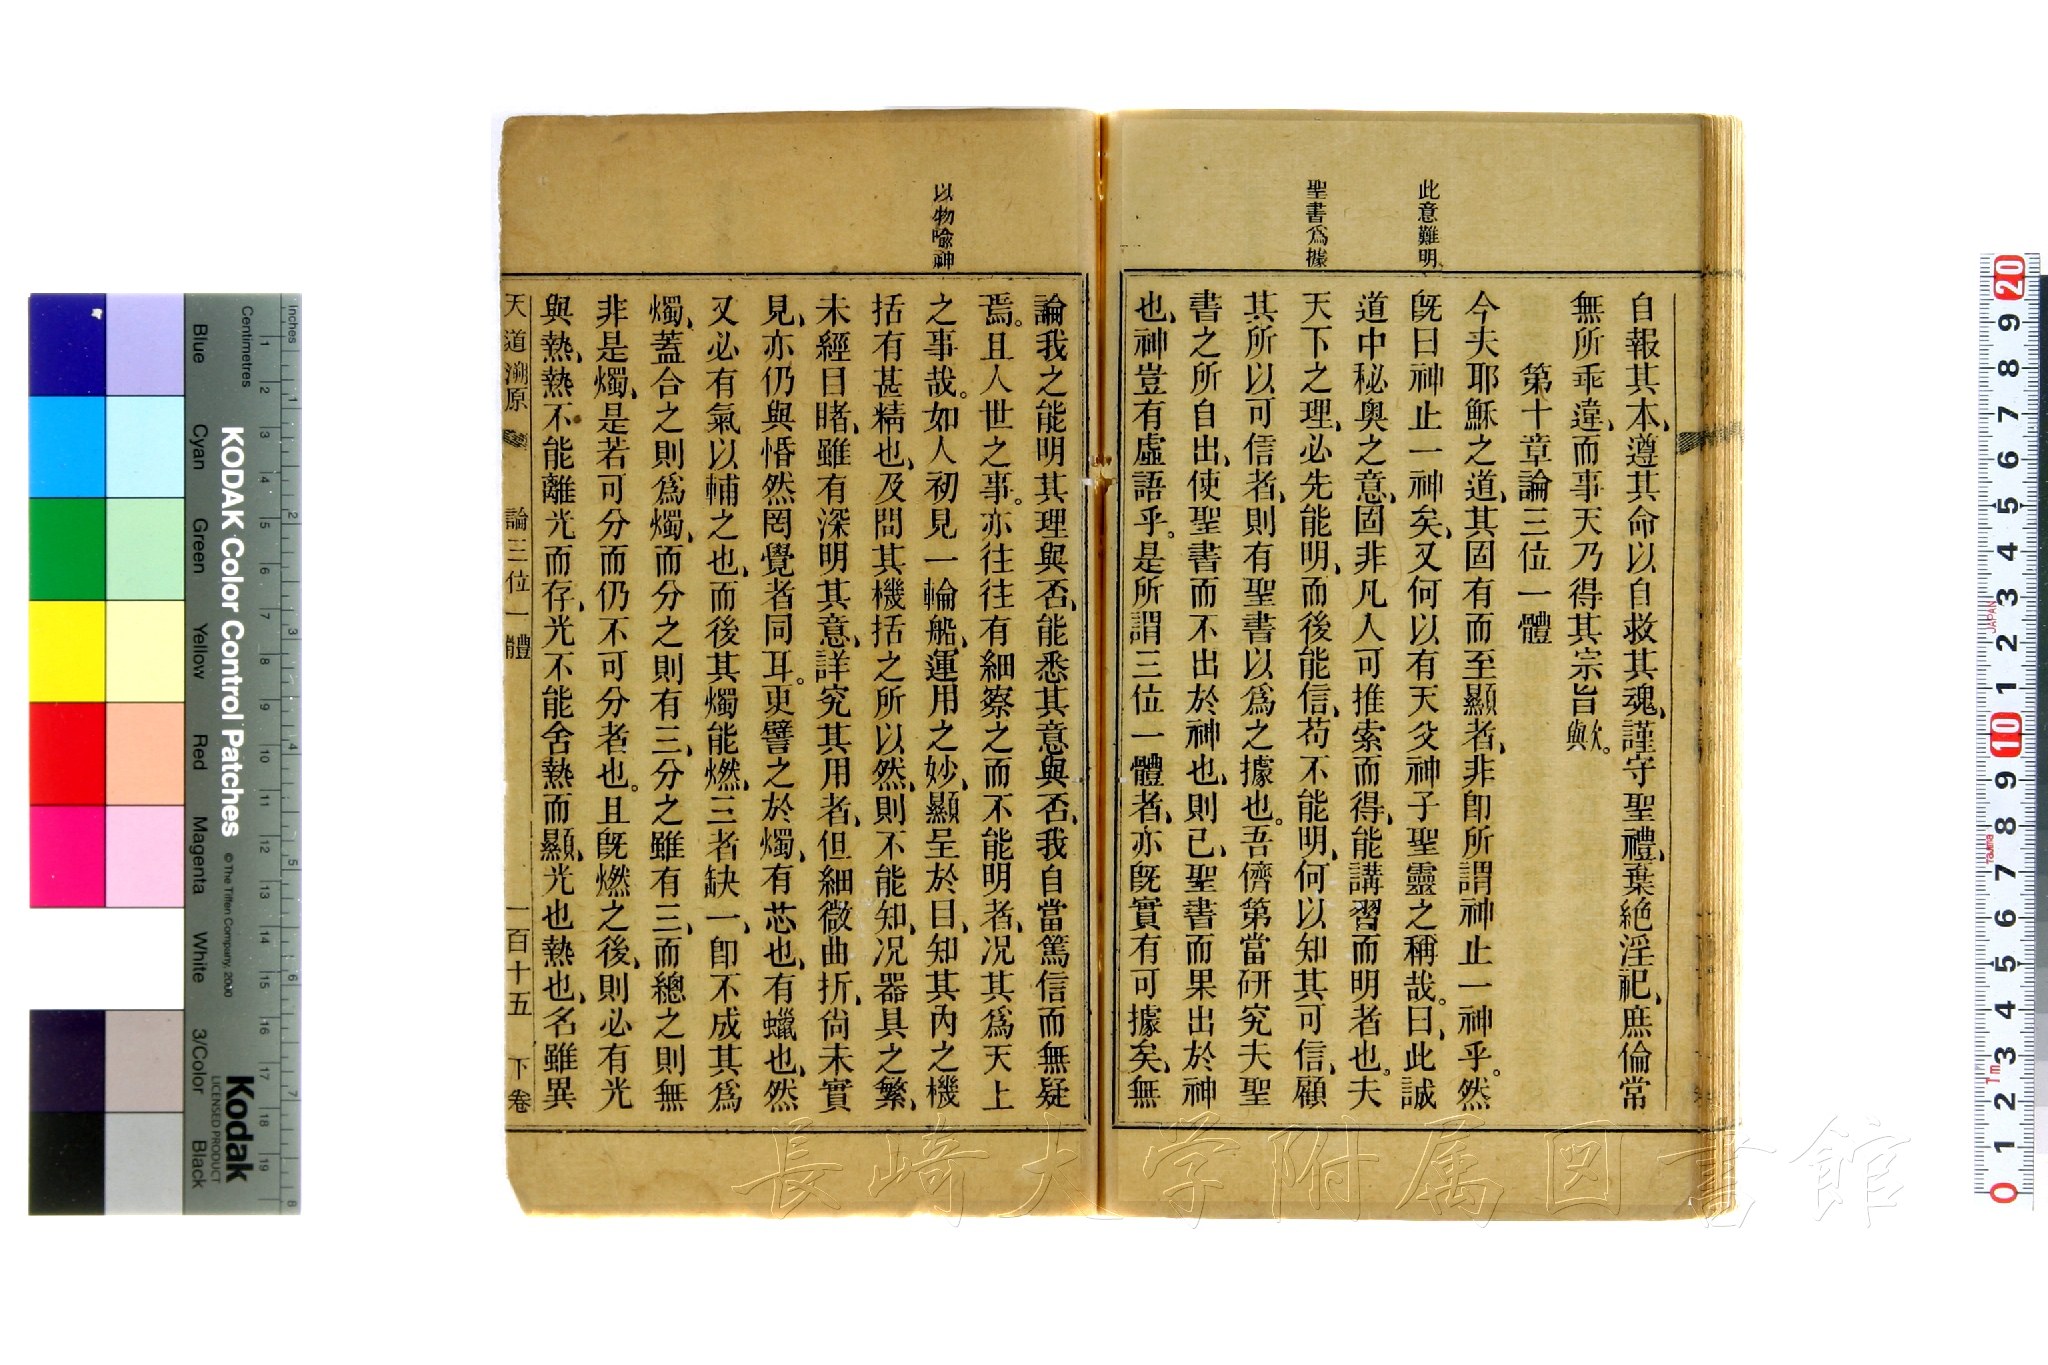 此意難明
聖書爲據
自報其本、遵其命以自救其魂、謹守聖禮、棄絶淫祀、庶倫常
無所乖違、而事天乃得其宗旨歟。
第十章論三位一體
今夫耶穌之道、其固有而至顯者、非卽所謂神止一神乎。然
旣曰神止一神矣、又何以有天父神子聖靈之稱哉。曰、此誠
道中秘奧之意、固非凡人可推索而得、能講習而明者也。夫
天下之理、必先能明、而後能信、苟不能明、何以知其可信、顧
其所以可信者、則有聖書以爲之據也。吾儕第當研究夫聖
書之所自出、使聖書而不出於神也、則已、聖書而果出於神
也、神豈有虛語乎。是所謂三位一體者、亦旣實有可據矣、無
以物喩神
論我之能明其理與否、能悉其意與否、我自當篤信而無疑
焉。且人世之事。亦往往有細察之而不能明者、况其爲天上
之事哉。如人初見一輪船、運用之妙、顯呈於目、知其內之機
括有甚精也、及問其機括之所以然、則不能知、况器具之繁、
未經目睹、雖有深明其意、詳究其用者、但細微曲折、尙未實
見、亦仍與惛然罔覺者同耳。更譬之於燭、有芯也、有蠟也、然
又必有氣以輔之也、而後其燭能燃、三者缺一、卽不成其爲
燭、蓋合之則爲燭、而分之則有三、分之雖有三、而總之則無
非是燭、是若可分而仍不可分者也。且旣燃之後、則必有光
與熱、熱不能離光而存、光不能舍熱而顯、光也熱也、名雖異
天道溯原 論三位一體 一百十五 下卷
長崎大学附属図書館
KODAK Color Control Patches
© The Tiffen Company, 2000
Kodak
LICENSED PRODUCT
Inches
Centimetres
Blue Cyan Green Yellow Red Magenta White 3/Color Black